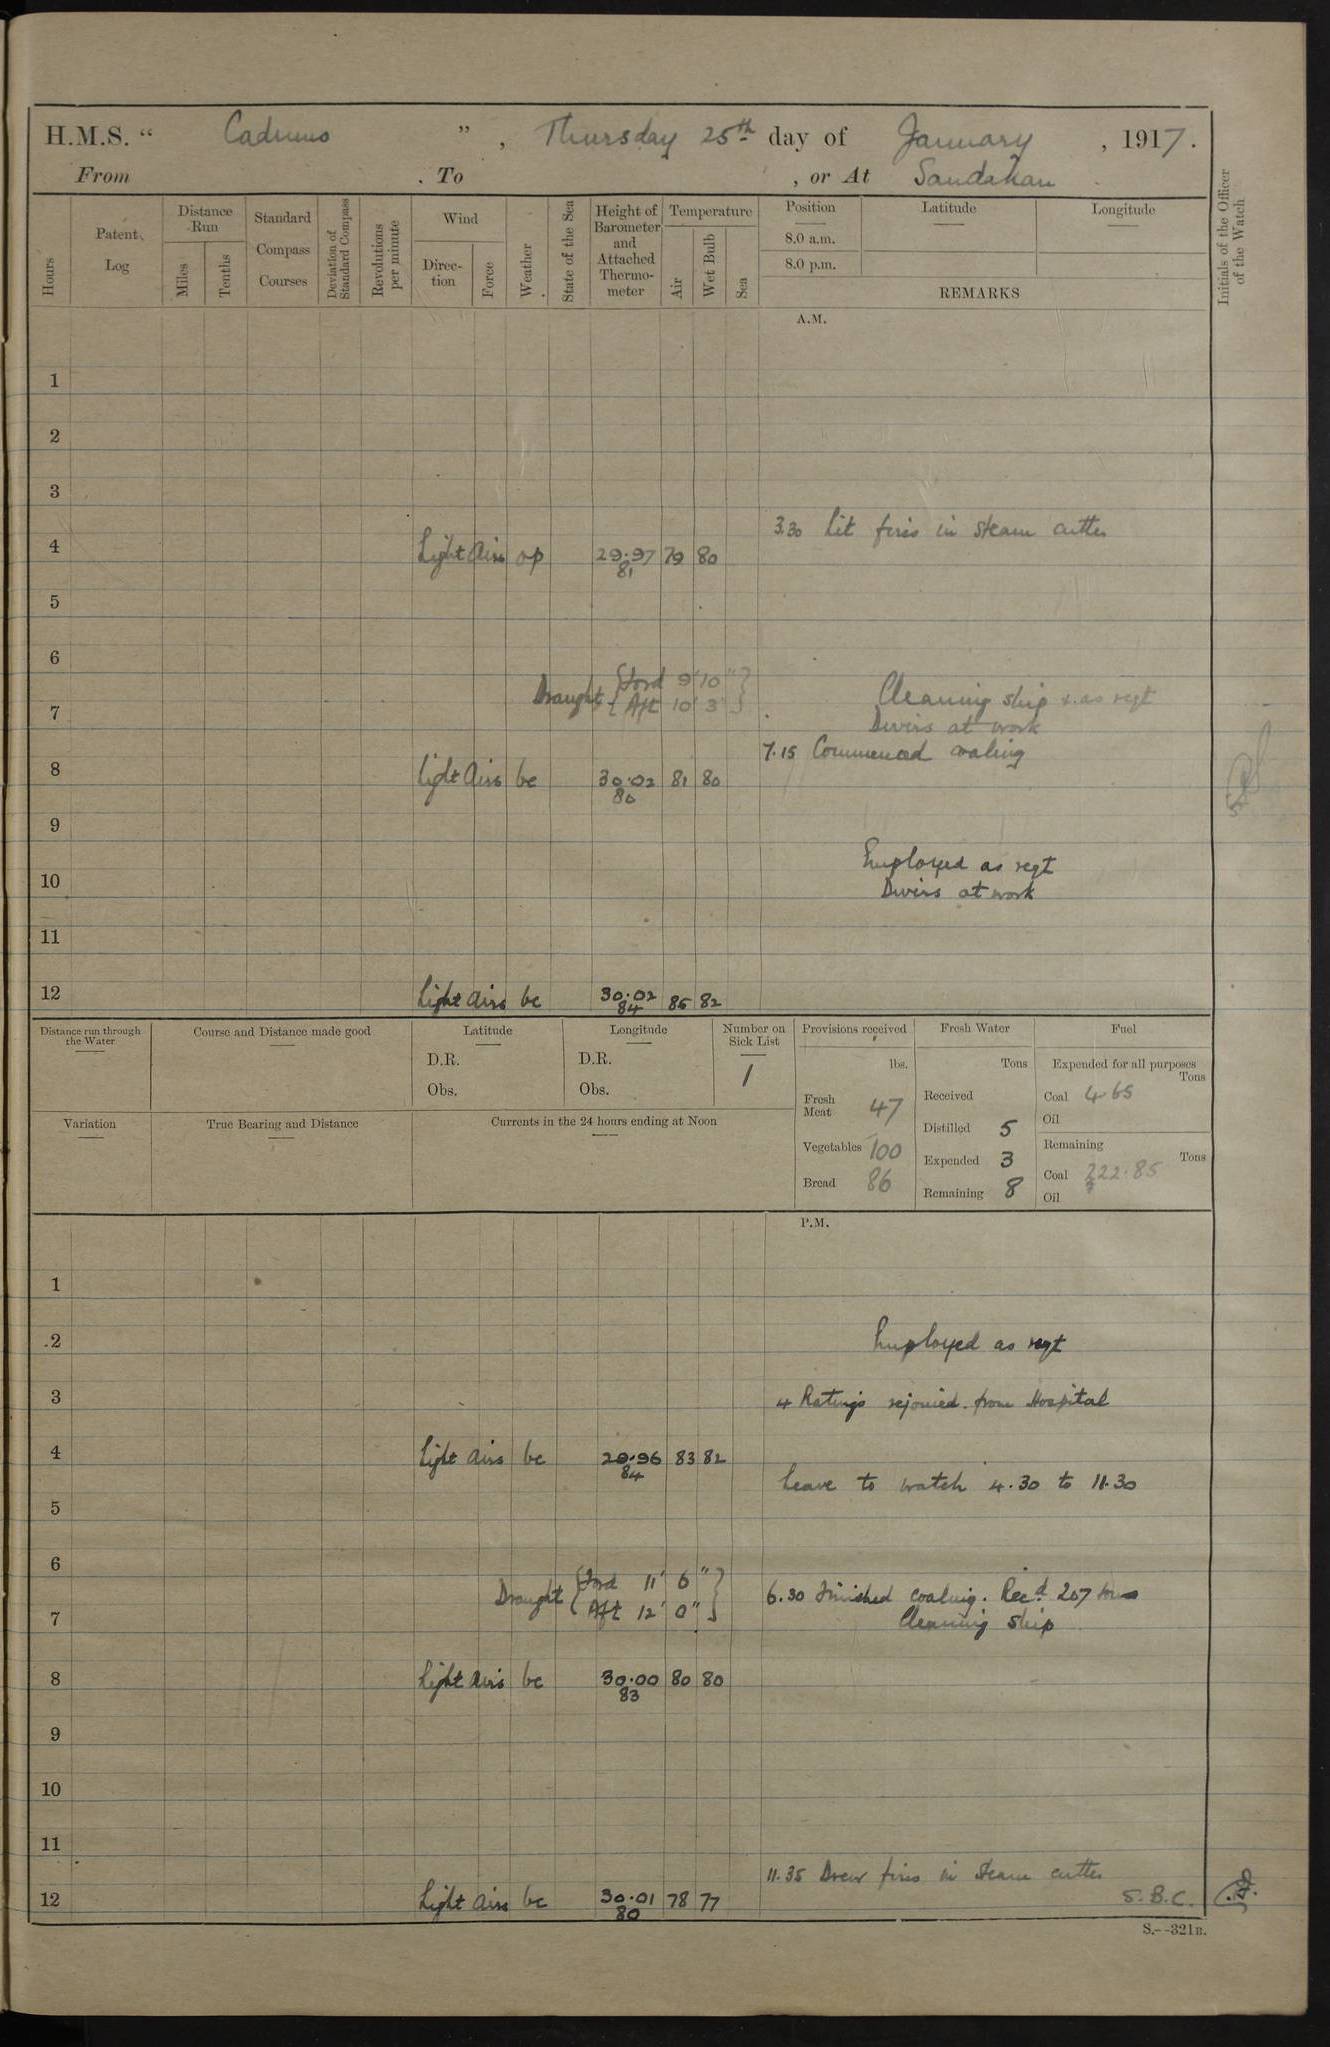 H.M.S. " Cadmus ", Thursday 25th day of January, 1917.
From . To , or At Sandakan
Hours
Patent Log
Distance Run
Miles
Tenths
Standard Compass Courses
Deviation of Standard Compass
Revolutions per minute
Wind
Direction
Force
Weather
State of the Sea
Height of Barometer and Attached Thermometer
Temperature
Air
Wet Bulb
Sea
Position
8.0 a.m.
8.0 p.m.
Latitude
Longitude
REMARKS
Initials of the Officer of the Watch
A.M.
1
2
3
3.30 Lit fires in steam cutter
4 Light Airs op 29.97 79 80
81
5
6
Draught { Ford 9' 10" }
{ Aft 10' 3" }
Cleaning ship & as reqt
7
Divers at work
7.15 Commenced coaling
8 Light Airs bc 30.02 81 80
80
9
Employed as reqt
10
Divers at work
11
12 Light airs bc 30.02 86 82
84
Distance run through the Water
Course and Distance made good
Latitude
D.R.
Obs.
Longitude
D.R.
Obs.
Number on Sick List
1
Provisions received
lbs.
Fresh Meat 47
Vegetables 100
Bread 86
Fresh Water
Tons
Received
Distilled 5
Expended 3
Remaining 8
Fuel
Expended for all purposes
Tons
Coal 4.65
Oil
Remaining
Tons
Coal 222.85
Oil
Variation
True Bearing and Distance
Currents in the 24 hours ending at Noon
P.M.
1
2 Employed as reqt
3 4 Ratings rejoined from Hospital
4 Light airs bc 29.96 83 82
84
Leave to watch 4.30 to 11.30
5
6
Draught { Ford 11' 6" }
{ Aft 12' 0" }
6.30 Finished coaling. Recd. 207 tons
7 Cleaning ship
8 Light airs bc 30.00 80 80
83
9
10
11
11.35 Drew fires in steam cutter
12 Light airs bc 30.01 78 77
80
S.B.C.
S.--321B.